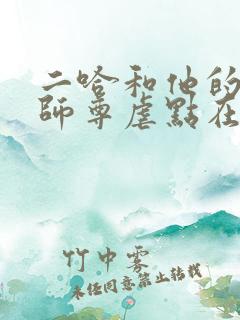 二哈和他的
師尊虐點在
竹中霧
未经同意禁止转载